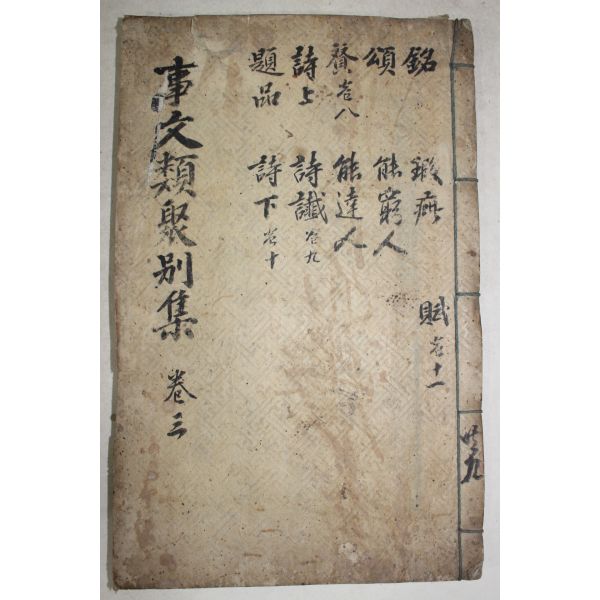 銘 鍜疵
頌 能窮人
賛 卷八 能達人
詩上 詩讖 卷九
題品 詩下 卷十
賦 卷十一
事文類聚別集 卷三
共九